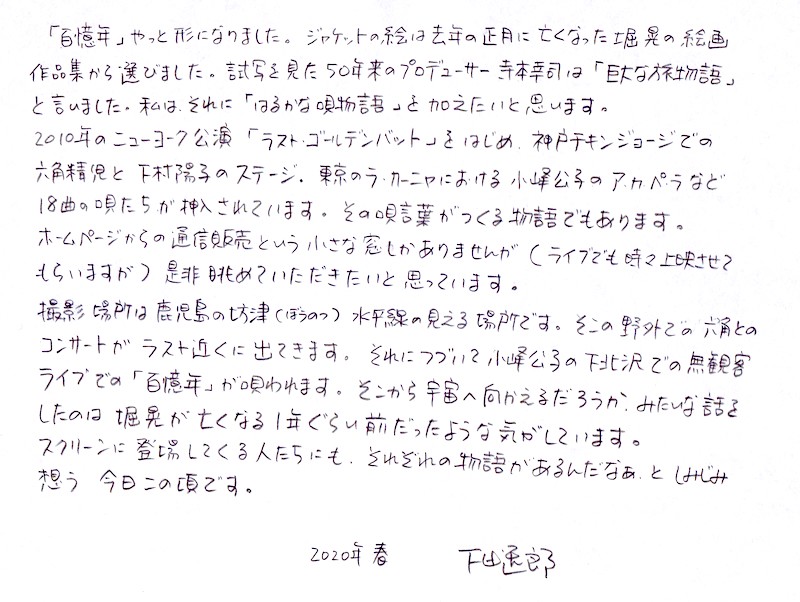 「百憶年」やっと形になりました。ジャケットの絵は去年の正月に亡くなった堀晃の絵画
作品集から選びました。試写を見た50年来のプロデューサー寺本幸司は「巨大な旅物語」
と言いました。私は、それに「はるかな唄物語」を加えたいと思います。
2010年のニューヨーク公演「ラスト・ゴールデンバット」をはじめ、神戸チキンジョージでの
六角精児と下村陽子のステージ、東京のラ・カーニャにおける小峰公子のア・カ・ペ・ラなど
18曲の唄たちが挿入されています。その唄言葉がつくる物語でもあります。
ホームページからの通信販売という小さな窓しかありませんが(ライブでも時々上映させて
もらいますが)是非眺めていただきたいと思っています。
撮影場所は鹿児島の坊津(ぼうのつ)水平線の見える場所です。そこの野外での六角との
コンサートがラスト近くに出てきます。それにつづいて小峰公子の下北沢での無観客
ライブでの「百憶年」が唄われます。そこから宇宙へ向かえるだろうか、みたいな話を
したのは堀晃が亡くなる1年ぐらい前だったような気がしています。
スクリーンに登場してくる人たちにも、それぞれの物語があるんだなぁ、としみじみ
想う 今日この頃です。
2020年 春 下田逸郎